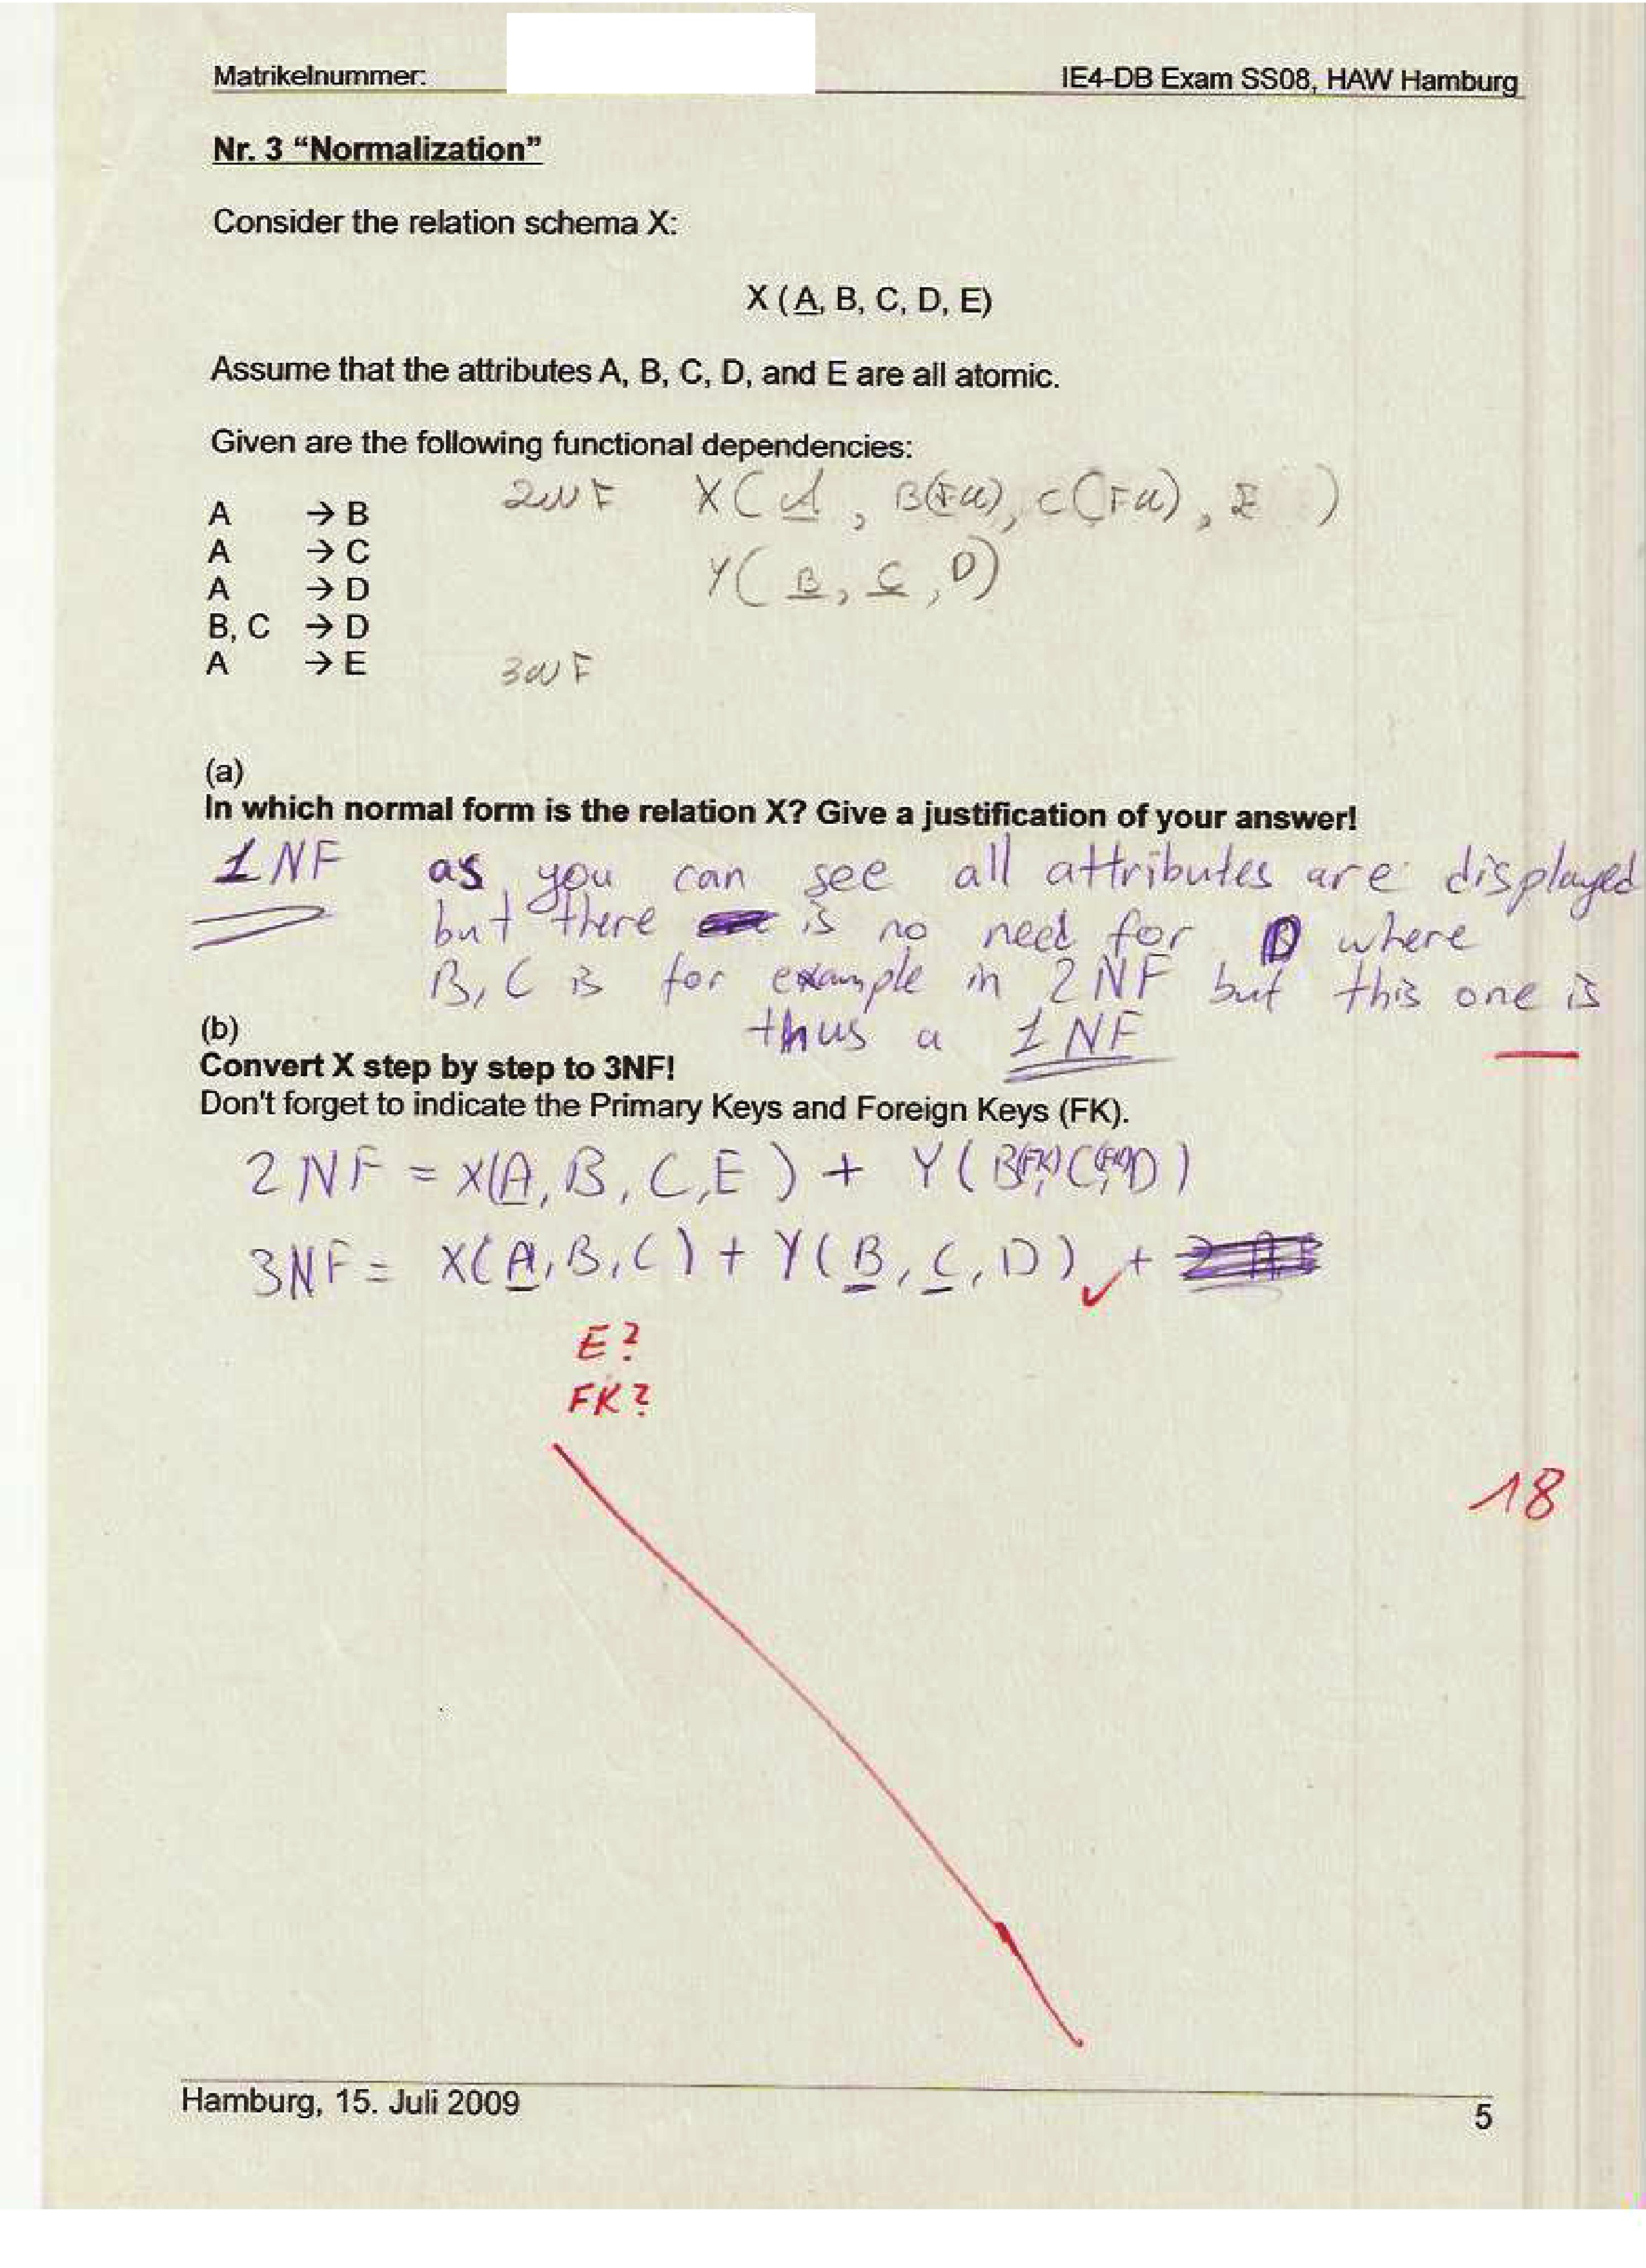 Matrikelnummer:
IE4-DB Exam SS08, HAW Hamburg
Nr. 3 “Normalization”
Consider the relation schema X:
X (A, B, C, D, E)
Assume that the attributes A, B, C, D, and E are all atomic.
Given are the following functional dependencies:
A → B
A → C
A → D
B, C → D
A → E
2NF X(A, B(FK), C(FK), E )
Y(B, C, D)
3NF
(a)
In which normal form is the relation X? Give a justification of your answer!
1NF as you can see all attributes are displayed
but there is no need for D where
B, C is for example in 2NF but this one is
thus a 1NF
(b)
Convert X step by step to 3NF!
Don't forget to indicate the Primary Keys and Foreign Keys (FK).
2NF = X(A, B, C, E) + Y(B(FK), C(FK), D)
3NF = X(A, B, C) + Y(B, C, D) ✓ +
E?
FK?
18
Hamburg, 15. Juli 2009
5